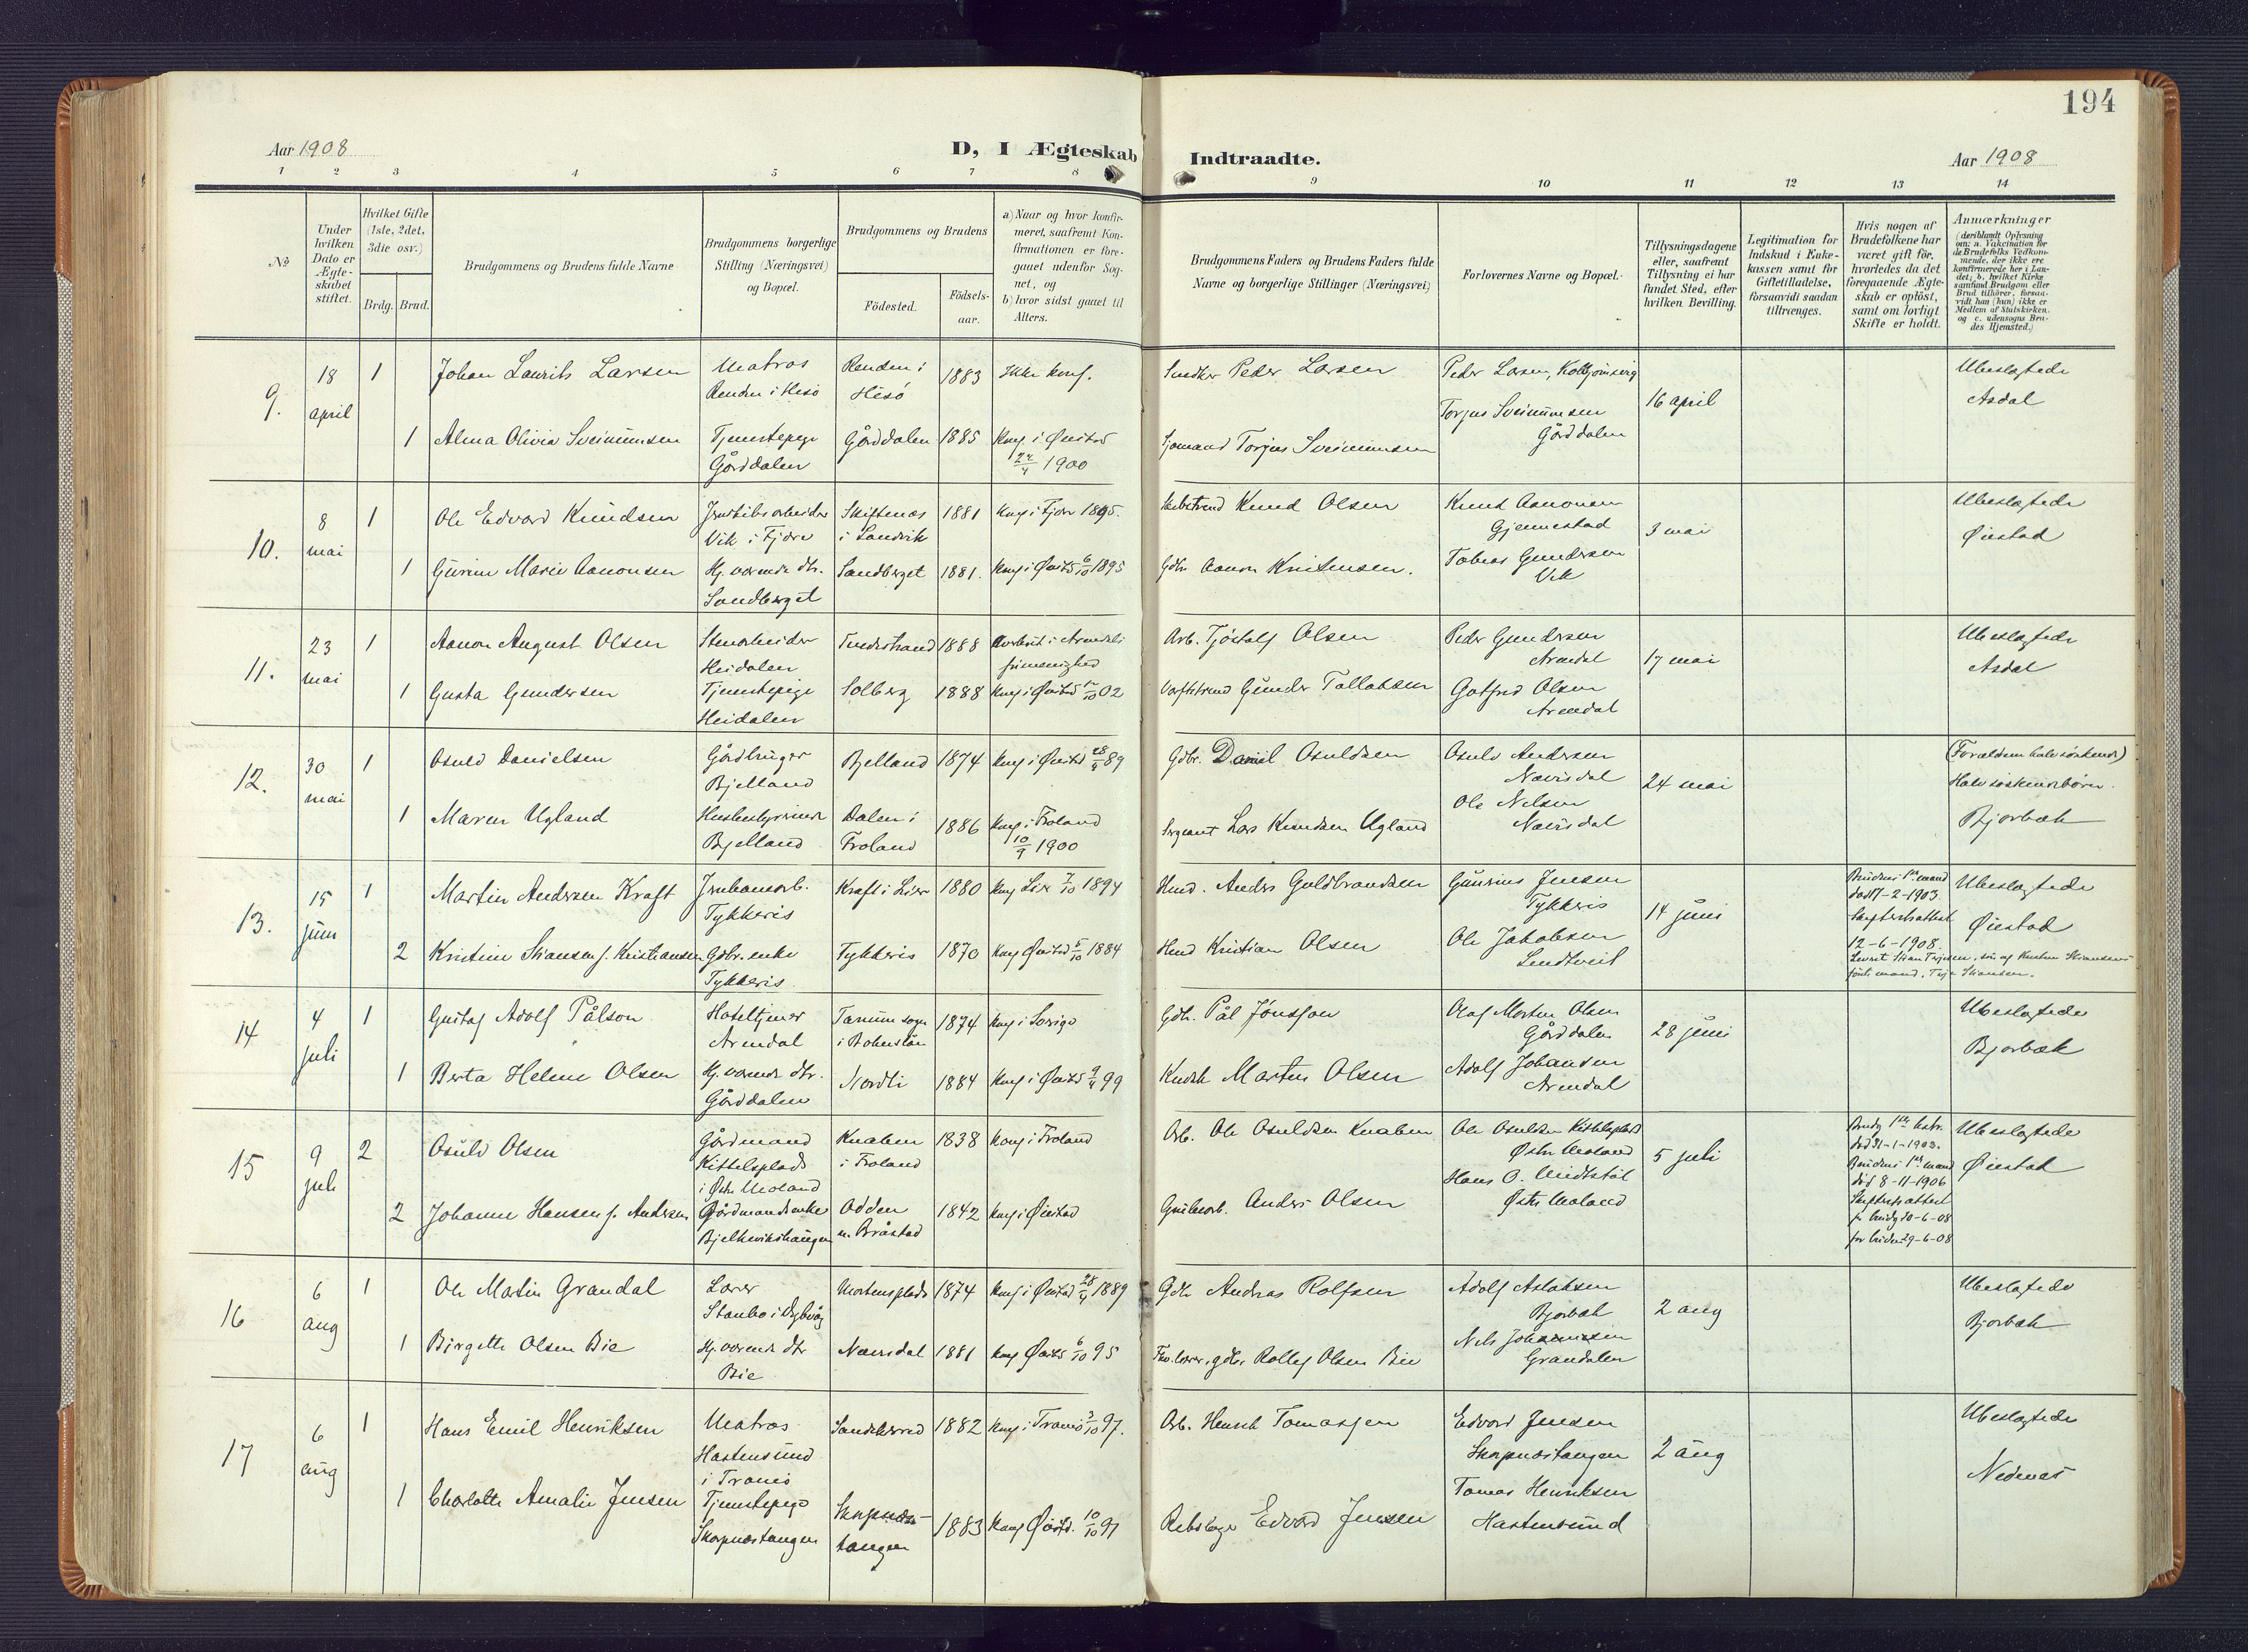 194
Aar 1908
D, I Ægteskab Indtraadte.
Aar 1908
1 2 3 4 5 6 7 8 9 10 11 12 13 14
No
Under hvilken Dato er Ægteskabet stiftet.
Hvilket Gifte (1ste, 2det, 3die osv.)
Brdg. Brud.
Brudgommens og Brudens fulde Navne
Brudgommens borgerlige Stilling (Næringsvei) og Bopæl.
Brudgommens og Brudens
Födested.
Födselsaar.
a) Naar og hvor konfirmeret, saafremt Konfirmationen er foregaaet udenfor Sognet, og
b) hvor sidst gaaet til Alters.
Brudgommens Faders og Brudens Faders fulde Navne og borgerlige Stillinger (Næringsvei)
Forlovernes Navne og Bopæl.
Tillysningsdagene eller, saafremt Tillysning ei har fundet Sted, efter hvilken Bevilling.
Legitimation for Indskud i Enkekassen samt for Giftetilladelse, forsaavidt saadan tiltrænges.
Hvis nogen af Brudefolkene har været gift för, hvorledes da det foregaaende Ægteskab er oplöst, samt om lovligt Skifte er holdt.
Anmærkninger
(deriblandt Oplysning om: a. Vakcination for de Brudefolks Vedkommende, der ikke ere konfirmerede her i Landet; b. hvilket Kirkesamfund Brudgom eller Brud tilhörer, forsaavidt han (hun) ikke er Medlem af Statskirken, og c. udensogns Brudes Hjemsted.)
9. 18 april 1 Johan Laurits Larsen Matros Renden i Hisö Renden i Hisö 1883 Ikke konf. Peder Larsen Peder Larsen, 16 april Ubeslægtede Asdal
1 Alma Olivia Sveinumsen Tjenestepige Gårddalen Gårddalen 1885 Konf. i Öiestad 1900 Sjømand Torjus Sveinumsen Torjus Sveinumsen Gårddalen
10. 8 mai 1 Ole Edvard Knudsen Vik i Fjære Skiftenes i Landvik 1881 Konf. i Fjære 1895. Knud Olsen Knut Aanonsen Gjennestad 3 mai Ubeslægtede Øiestad
1 Gurine Marie Aanonsen Hj. værende dtr. Sandberget Sandberget 1881. Konf. i Øiestad 6/10 1895 Gdbr. Aanon Kristensen. Tobias Gundersen Vik
11. 23 mai 1 Aanon August Olsen Stenarbeider Heidalen 1888 i Arendals frimenighed Arb. Tjöstolf Olsen Peder Gundersen Arendal 17 mai Ubeslægtede Asdal
1 Gusta Gundersen Tjenestepige Heidalen Solberg 1888 Konf. i Øiestad 02 Gunder Tallaksen Gotfred Olsen Arendal
12. 30 mai 1 Osuld Danielsen Gårdbruger Bjelland Bjelland 1874 Konf. i Øiestad 28/4 89 Gdbr. Daniel Osuldsen Osuld Andersen Nævisdal 24 mai (Forældrene halvsöskende) Halvsöskendebørn. Bjorbæk
1 Maren Ugland Husbestyrerinde Bjelland Dalen i Froland 1886 Konf. i Froland 10/9 1900 Sergeant Lars Knudsen Ugland Ole Nelsen Nævisdal
13. 15 juni 1 Martin Andersen Kraft Jernbanearb. Tykkeris Kraft i Lier 1880 Konf. Lier 7/10 1894 Husmd. Anders Guldbrandsen Jensen Tykkeris 14 juni Brudens 1ste mand død 17-2-1903. Skifteretsattest 12-6-1908. Ubeslægtede Øiestad
2 Kristine Stiansen f. Kristiansen Gdbr. enke Tykkeris Tykkeris 1870 Konf. Øiestad 5/10 1884 Husmd Kristian Olsen Ole Jakobsen Lindtveit
14 4 juli 1 Gustaf Adolf Pålson Hoteltjener Arendal Tanum sogn i Bohuslän 1874 Konf. i Sverige Gdbr. Pål Jönsson Olaf Morten Olsen Gårddalen 28 juni Ubeslægtede Bjorbæk
1 Berta Helene Olsen Hj. værende dtr. Gårddalen Nordli 1884 Konf. i Øiestad 99 Kudsk Martin Olsen Adolf Johansen Arendal
15 9 juli 2 Osuld Olsen Gårdmand Kittelsplads i Østre Moland Knaben i Froland 1838 Konf. i Froland Arb. Ole Osuldsen Knaben Ole Osuldsen Kittelsplads Østre Moland 5 juli Brudg. 1ste hustr. død 31-1-1903. Brudens 1ste mand død 8-11-1906 Skifteretsattest for brudg. 30-6-08 for bruden 29-6-08 Ubeslægtede Øiestad
2 Johanne Hansen f. Andersen Gårdmandsenke Bjelkevikshaugen Odden u. Bråstad 1842 Konf. i Øiestad Grubearb. Anders Olsen Hans O. Midtstöl Østre Moland
16 6 aug 1 Ole Martin Grandal Lærer Staubo i Dybvåg Mortensplads 1874 Konf. i Øiestad 28/4 1889 Gdbr. Andreas Rolfsen Adolf Aslaksen Bjorbæk 2 aug Ubeslægtede Bjorbæk
1 Birgitte Olsen Bie Hj. værende dtr Bie Nævisdal 1881 Konf. Øiestad 6/10 95 gdbr. Rollef Olsen Bie Nils Johannessen Grandalen
17 6 aug 1 Hans Emil Henriksen Matros Hastensund i Tromö 1882 Konf. i Tromö 3/10 97. Arb. Henrik Tomassen Edvard Jensen Skarpnæstangen 2 aug Ubeslægtede Nedenæs
1 Charlotte Amalie Jensen Tjenestepige Skarpnæstangen Skarpnæstangen 1883 Konf. Øiestd. 10/10 97 Rebslager Edvard Jensen Tomas Henriksen Hastensund